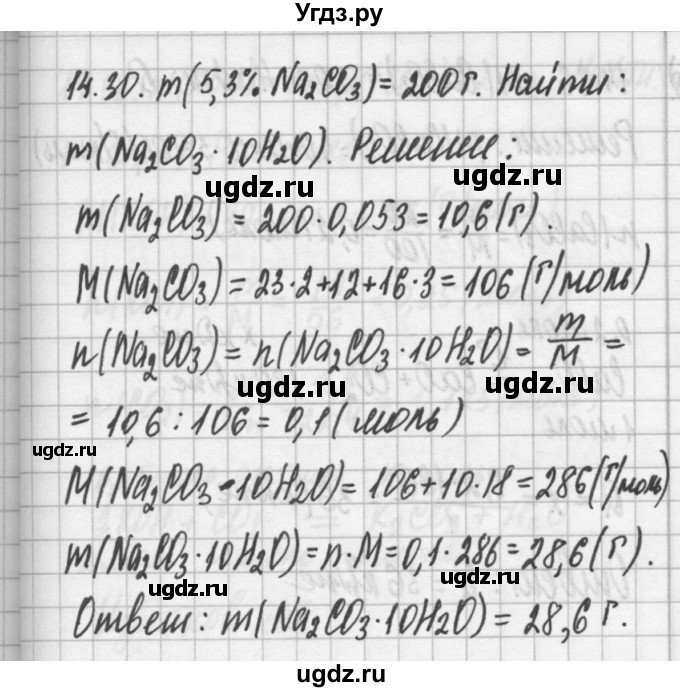 Угдз.ру
14.30. m(5,3% Na₂CO₃) = 200 г. Найти:
m(Na₂CO₃ · 10H₂O). Решение:
ugdz.ru ugdz.ru
m(Na₂CO₃) = 200 · 0,053 = 10,6 (г).
M(Na₂CO₃) = 23 · 2 + 12 + 16 · 3 = 106 (г/моль)
ugdz.ru
n(Na₂CO₃) = n(Na₂CO₃ · 10H₂O) = m/M =
ugdz.ru ugdz.ru
= 10,6 : 106 = 0,1 (моль)
ugdz.ru
M(Na₂CO₃ · 10H₂O) = 106 + 10 · 18 = 286 (г/моль)
ugdz.ru
m(Na₂CO₃ · 10H₂O) = n · M = 0,1 · 286 = 28,6 (г).
ugdz.ru ugdz.ru
Ответ: m(Na₂CO₃ · 10H₂O) = 28,6 г.
ugdz.ru
ugdz.ru